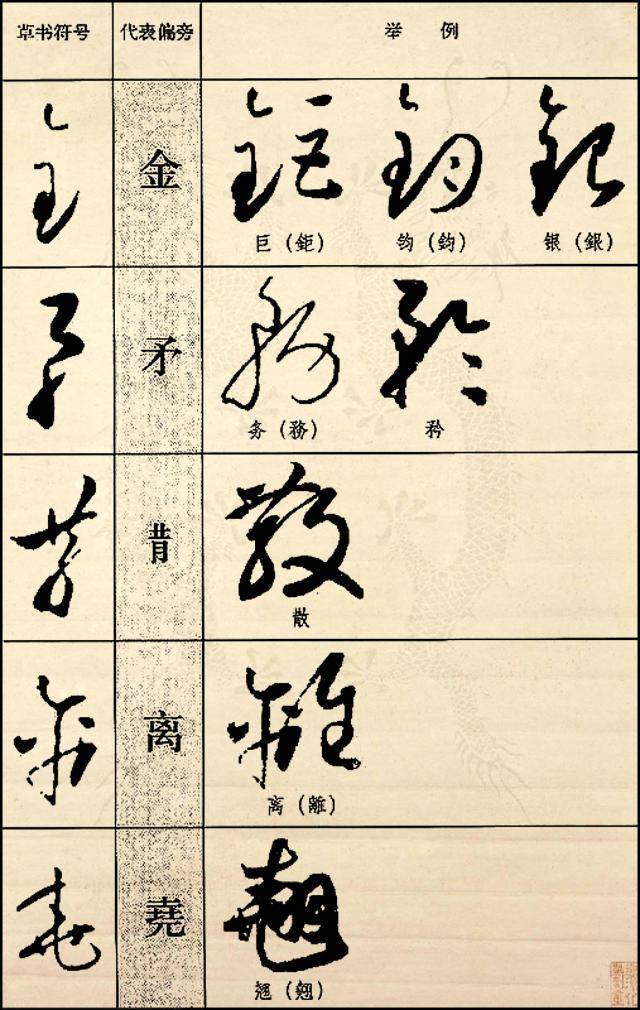 草书符号 代表偏旁 举例
金 巨（鉅） 钧（鈞） 银（銀）
矛 务（務） 矜
散 散
离 离（離）
堯 翘（翹）